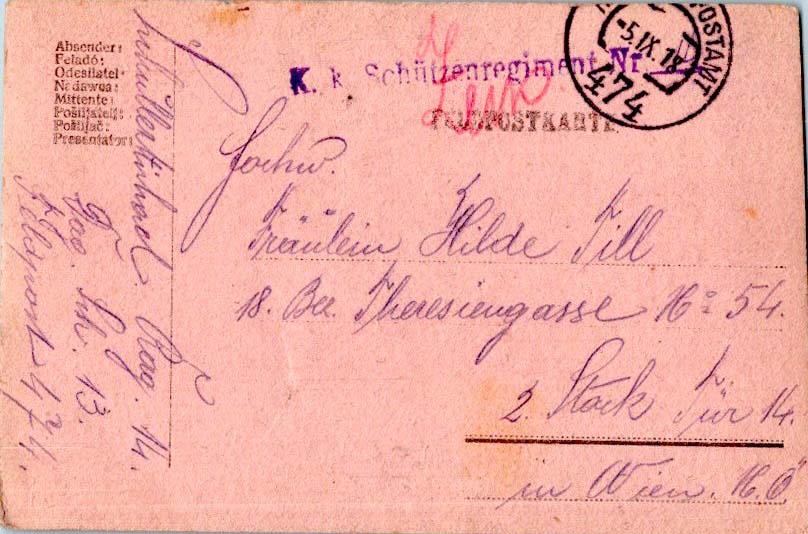 Absender:
Feladó:
Odesílatel:
Nadawca:
Mittente:
Pošiljatelj:
Pošiljač:
Presentator:
K. k. Schützenregiment Nr.
FELDPOSTKARTE
POSTAMT
-5.IX.18
474
Hochw.
Fräulein Hilde Till
18. Bez. Theresiengasse No 54.
2. Stock Tür 14.
in Wien. N. Ö.
14.
13.
Feldpost 474.